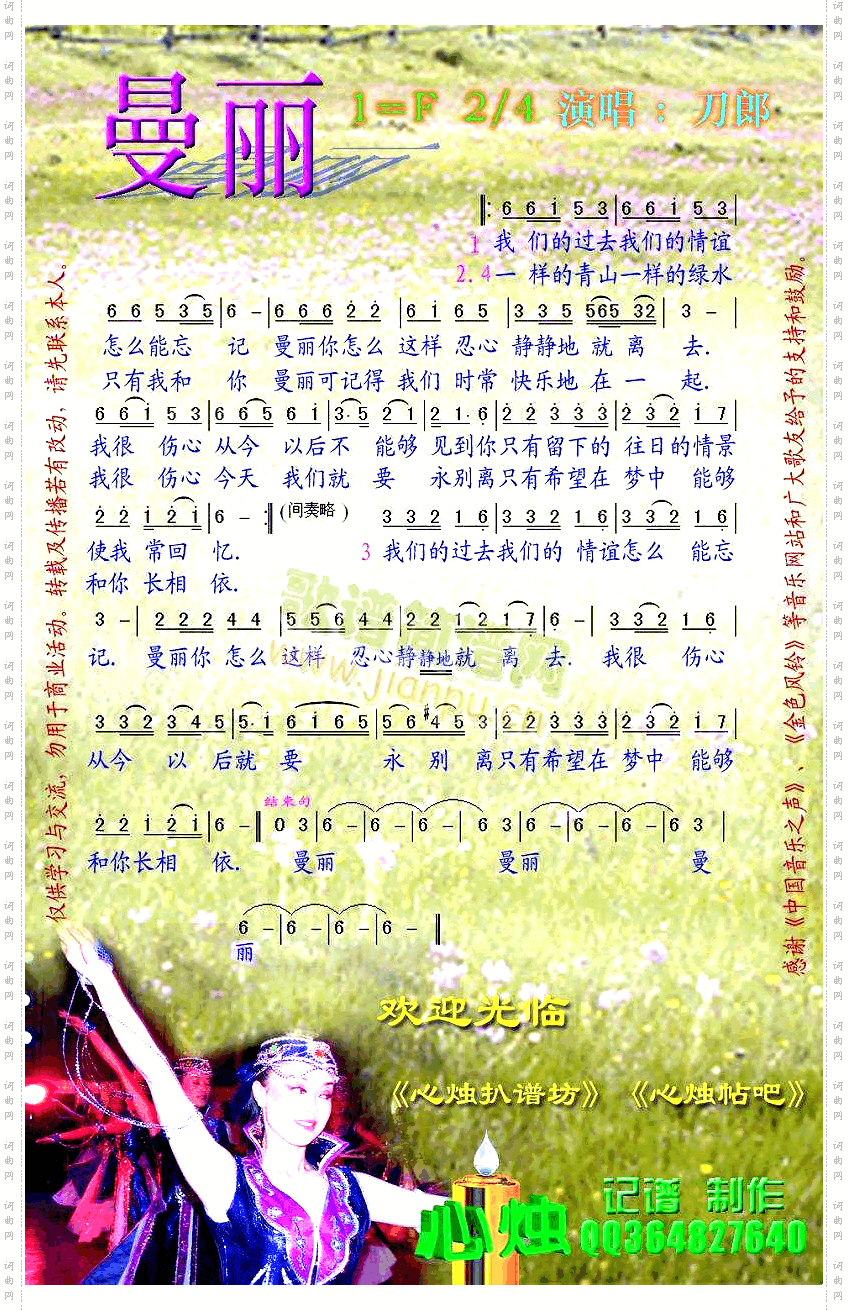 曼丽
1=F 2/4 演唱：刀郎
‖: 6 6 i 5 3 | 6 6 i 5 3 |
1 我 们的过去我们的情谊
2.4 一 样的青山一样的绿水
6 6 5 3 5 | 6 - | 6 6 6 2 2 | 6 i 6 5 | 3 3 5 565 32 | 3 - |
怎么能忘 记 曼丽你怎么 这样 忍心 静静地 就 离 去.
只有我和 你 曼丽可记得 我们 时常 快乐地 在 一 起.
6 6 i 5 3 | 6 6 5 6 i | 3· 5 2 i | 2 i· 6 | 2 2 3 3 3 | 2 3 2 i 7 |
我很 伤心 从今 以后不 能够 见到你只有留下的 往日的情景
我很 伤心 今天 我们就 要 永别离只有希望在 梦中 能够
2 2 i 2 i | 6 - :‖ (间奏略) 3 3 2 1 6 | 3 3 2 1 6 | 3 3 2 1 6 |
使我 常回 忆. 3 我们的过去我们的 情谊怎么 能忘
和你 长相 依.
3 - | 2 2 2 4 4 | 5 5 6 4 4 | 2 2 1 2 1 7 | 6 - | 3 3 2 1 6 |
记. 曼丽你 怎么 这样 忍心静静地就 离 去. 我很 伤心
3 3 2 3 4 5 | 5· i 6 i 6 5 | 5 6 #4 5 3 | 2 2 3 3 3 | 2 3 2 i 7 |
从今 以 后就 要 永 别 离只有希望在 梦中 能够
结束句
2 2 i 2 i | 6 - ‖ 0 3 | 6 - | 6 - | 6 - | 6 3 | 6 - | 6 - | 6 - | 6 3 |
和你长相 依. 曼丽 曼丽 曼
6 - | 6 - | 6 - | 6 - ‖
丽
仅供学习与交流，勿用于商业活动。转载及传播若有改动，请先联系本人。
感谢《中国音乐之声》、《金色风铃》等音乐网站和广大歌友给予的支持和鼓励。
歌谱简谱网
www.jianpu.cn
欢迎光临
《心烛扒谱坊》 《心烛帖吧》
心烛
记谱 制作
QQ364827640
词曲网